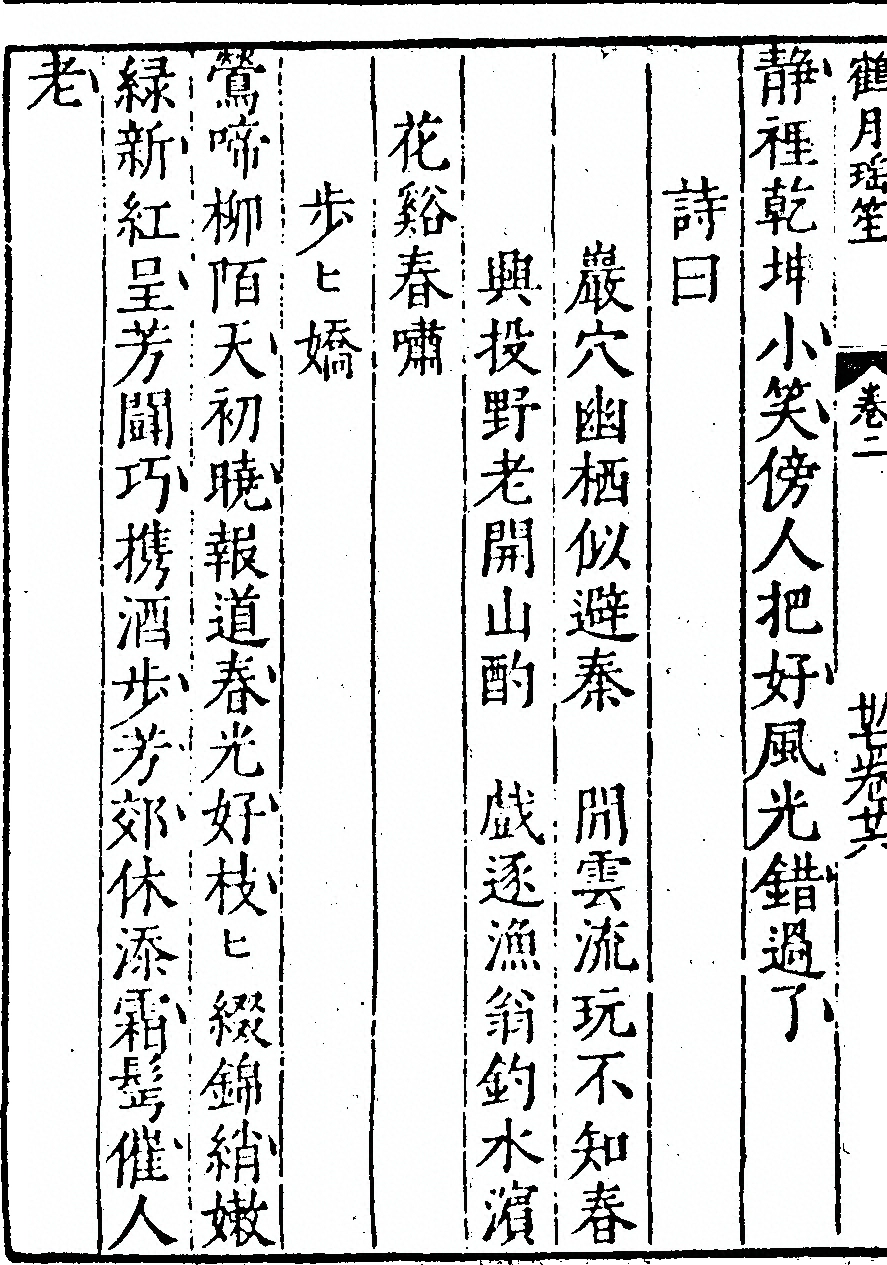 鶴月瑶笙 卷二
静裡乾坤小笑傍人把好風光錯過了
詩曰
巖穴幽栖似避秦 閒雲流玩不知春
興投野老開山酌 戯逐漁翁釣水濵
花谿春嘯
步ヒ嬌
鶯啼柳陌天初曉報道春光好枝ヒ綴錦綃嫩
緑新紅呈芳鬪巧携酒步芳郊休添霜髩催人
老